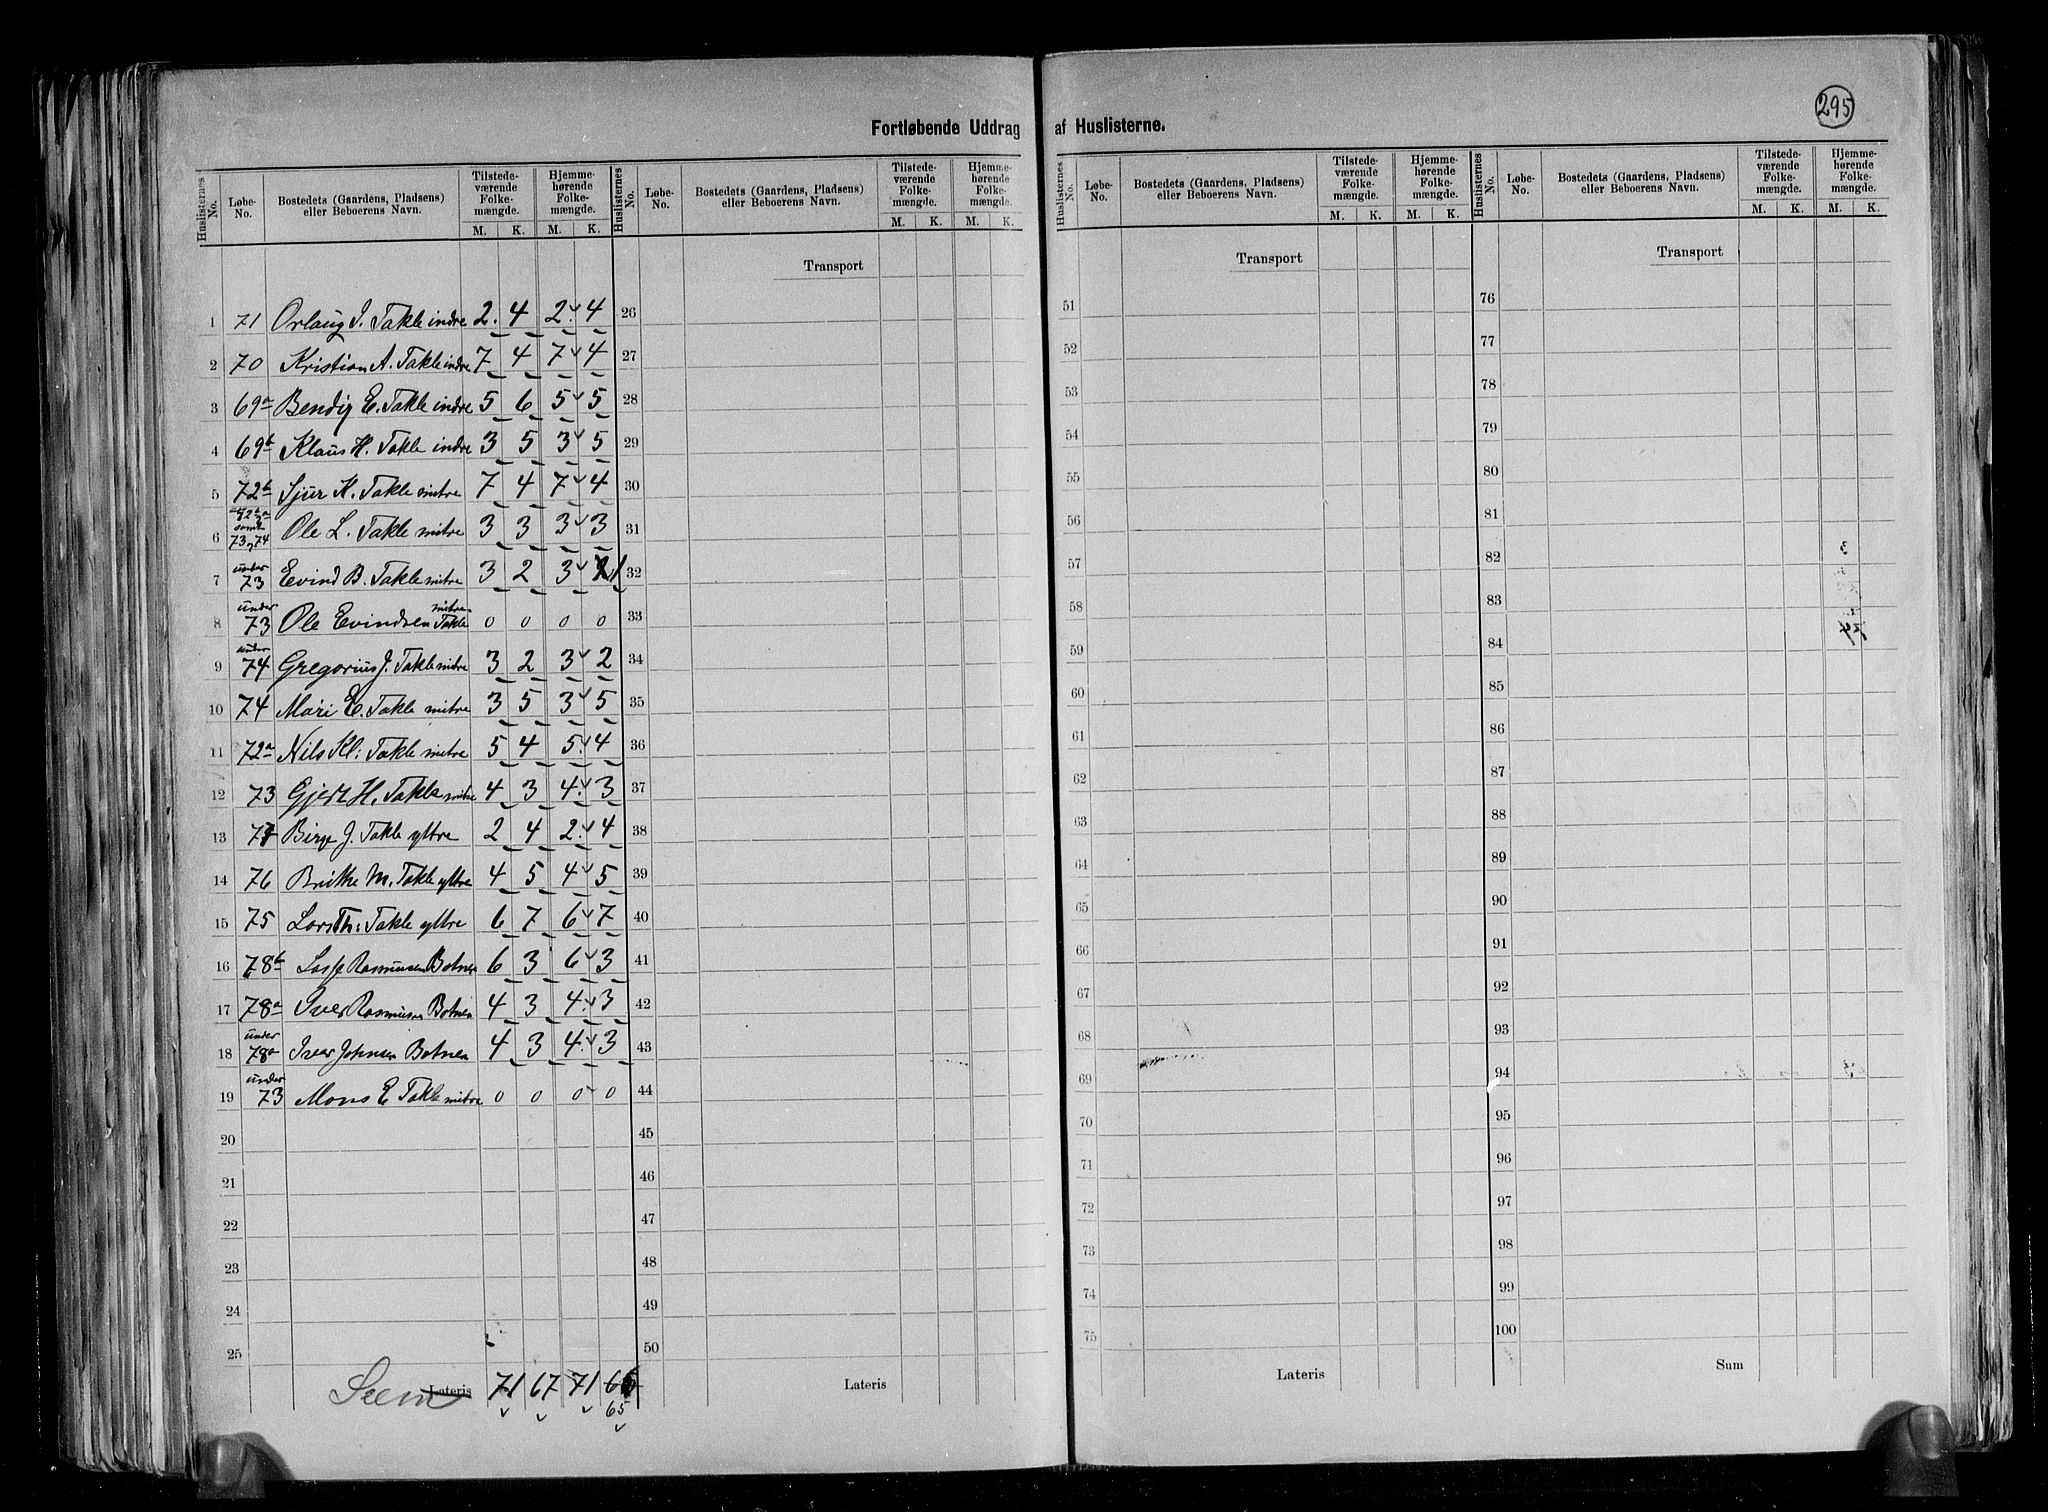 Fortløbende Uddrag af Huslisterne.
295
Huslisternes No. | Løbe-No. | Bostedets (Gaardens, Pladsens) eller Beboerens Navn. | Tilstedeværende Folkemængde. M. K. | Hjemmehørende Folkemængde. M. K.
Huslisternes No. | Løbe-No. | Bostedets (Gaardens, Pladsens) eller Beboerens Navn. | Tilstedeværende Folkemængde. M. K. | Hjemmehørende Folkemængde. M. K.
Huslisternes No. | Løbe-No. | Bostedets (Gaardens, Pladsens) eller Beboerens Navn. | Tilstedeværende Folkemængde. M. K. | Hjemmehørende Folkemængde. M. K.
Huslisternes No. | Løbe-No. | Bostedets (Gaardens, Pladsens) eller Beboerens Navn. | Tilstedeværende Folkemængde. M. K. | Hjemmehørende Folkemængde. M. K.
1 71 Orlaug I. Takle indre 2 4 2 4
2 70 Kristian A. Takle indre 7 4 7 4
3 69a Bendig E. Takle indre 5 6 5 5
4 69b Klaus H. Takle indre 3 5 3 5
5 72b Sjur K. Takle mitre 7 4 7 4
6 samt 73, 74 Ole L. Takle mitre 3 3 3 3
7 under 73 Eivind B. Takle mitre 3 2 3 1
8 under 73 Ole Eivindsen Takle mitre 0 0 0 0
9 under 74 Gregorius J. Takle mitre 3 2 3 2
10 74 Mari E. Takle mitre 3 5 3 5
11 72a Nils Kl: Takle mitre 5 4 5 4
12 73 Gjert H. Takle mitre 4 3 4 3
13 Birge J. Takle yttre 2 4 2 4
14 76 Brithe M. Takle yttre 4 5 4 5
15 75 Lars Th: Takle yttre 6 7 6 7
16 78b Rasmusen Botnen 6 3 6 3
17 78a Iver Rasmusen Botnen 4 3 4 3
18 under 78a Iver Johnsen Botnen 4 3 4 3
19 under 73 Mons E Takle mitre 0 0 0 0
20
21
22
23
24
25
Lateris 71 67 71 66
65
Transport
26
27
28
29
30
31
32
33
34
35
36
37
38
39
40
41
42
43
44
45
46
47
48
49
50
Lateris
Transport
51
52
53
54
55
56
57
58
59
60
61
62
63
64
65
66
67
68
69
70
71
72
73
74
75
Lateris
Transport
76
77
78
79
80
81
82
83
84
85
86
87
88
89
90
91
92
93
94
95
96
97
98
99
100
Sum